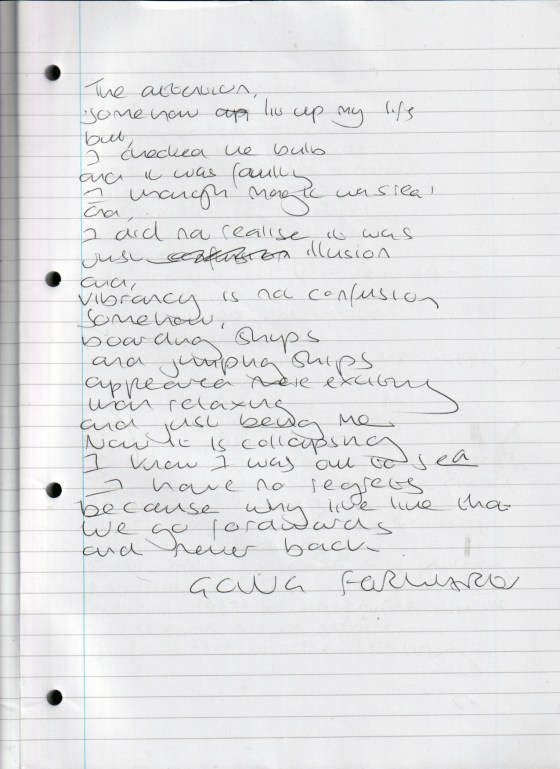 The attention,
somehow lit up my life
but,
I checked the bulb
and it was faulty
I though magic was real
and,
I did no realise it was
just illusion
and,
vibrancy is no confusion
Somehow,
boarding ships
and jumping ships
appeared more exciting
than relaxing
and just being me
Now it is collapsing
I know I was out to sea
I have no regrets
because why live like that
We go forwards
and never back
GOING FORWARD